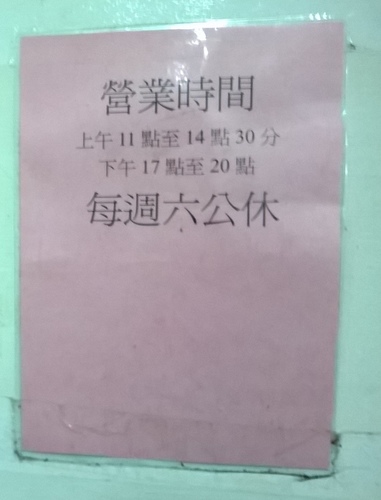 營業時間
上午 11 點至 14 點 30 分
下午 17 點至 20 點
每週六公休